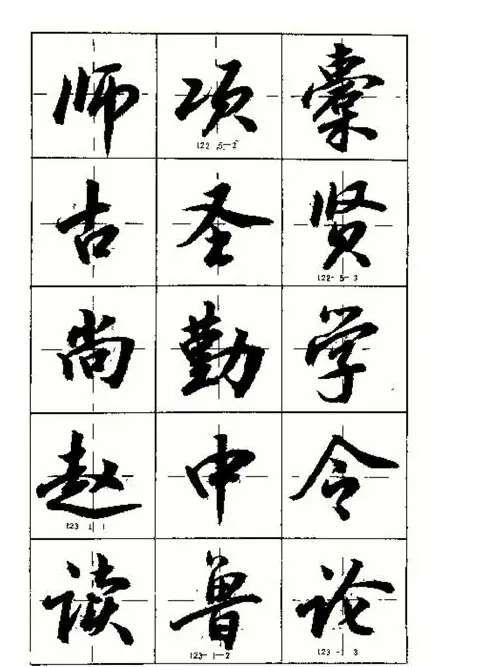 师项橐
122-5-2
古圣贤
122-5-3
尚勤学
赵中令
123-1-1
读鲁论
123-1-2
123-1-3